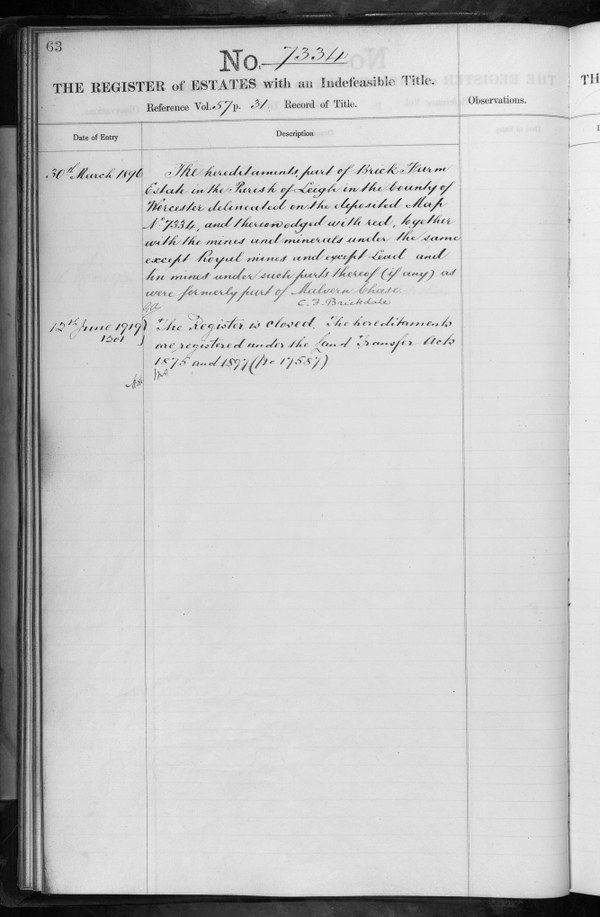 63
No. 7334
THE REGISTER of ESTATES with an Indefeasible Title.
Reference Vol. 57 p. 31 Record of Title.
Observations.
Date of Entry
Description
30th March 1896
The hereditaments, part of Brick Farm
Estate in the Parish of Leigh in the County of
Worcester delineated on the deposited Map
No 7334, and thereon edged with red, together
with the mines and minerals under the same
except Royal mines and except Lead and
tin mines under such parts thereof (if any) as
were formerly part of Malvern Chase
C. F. Brickdale
12th June 1919
1501
The Register is closed. The hereditaments
are registered under the Land Transfer Acts
1875 and 1897 (No 17587)
TH